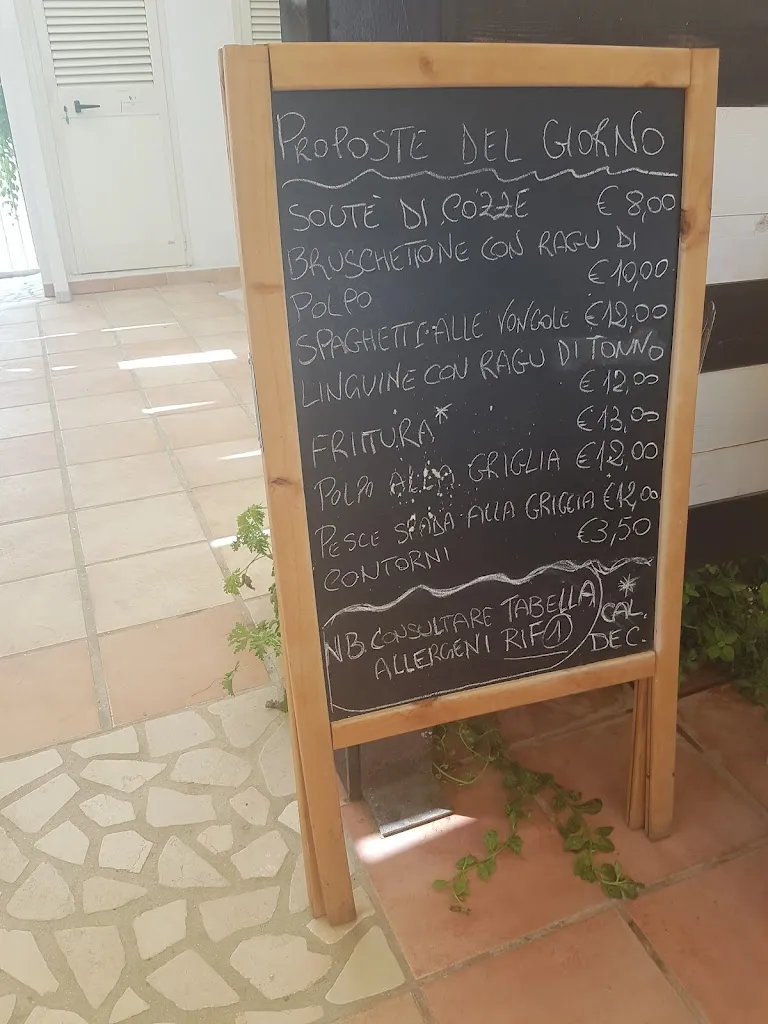 PROPOSTE DEL GIORNO
SOUTÈ DI COZZE € 8,00
BRUSCHETTONE CON RAGU DI
POLPO € 10,00
SPAGHETTI ALLE VONGOLE € 12,00
LINGUINE CON RAGU DI TONNO
€ 12,00
FRITTURA* € 13,00
POLPO ALLA GRIGLIA € 12,00
PESCE SPADA ALLA GRIGLIA € 12,00
CONTORNI € 3,50
NB. CONSULTARE TABELLA
ALLERGENI RIF 1
* CAL.
DEC.